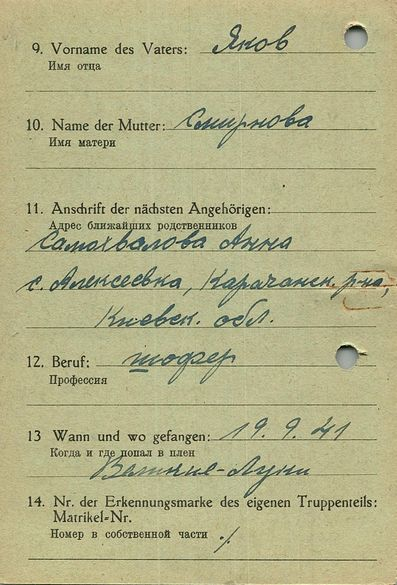 9. Vorname des Vaters: Яков
Имя отца
10. Name der Mutter: Смирнова
Имя матери
11. Anschrift der nächsten Angehörigen:
Адрес ближайших родственников
Самохвалова Анна
с. Алексеевка, Карачанск. р-на,
Киевск. обл.
12. Beruf: шофер
Профессия
13 Wann und wo gefangen: 19. 9. 41
Когда и где попал в плен
Великие-Луки
14. Nr. der Erkennungsmarke des eigenen Truppenteils:
Matrikel-Nr.
Номер в собственной части ./.